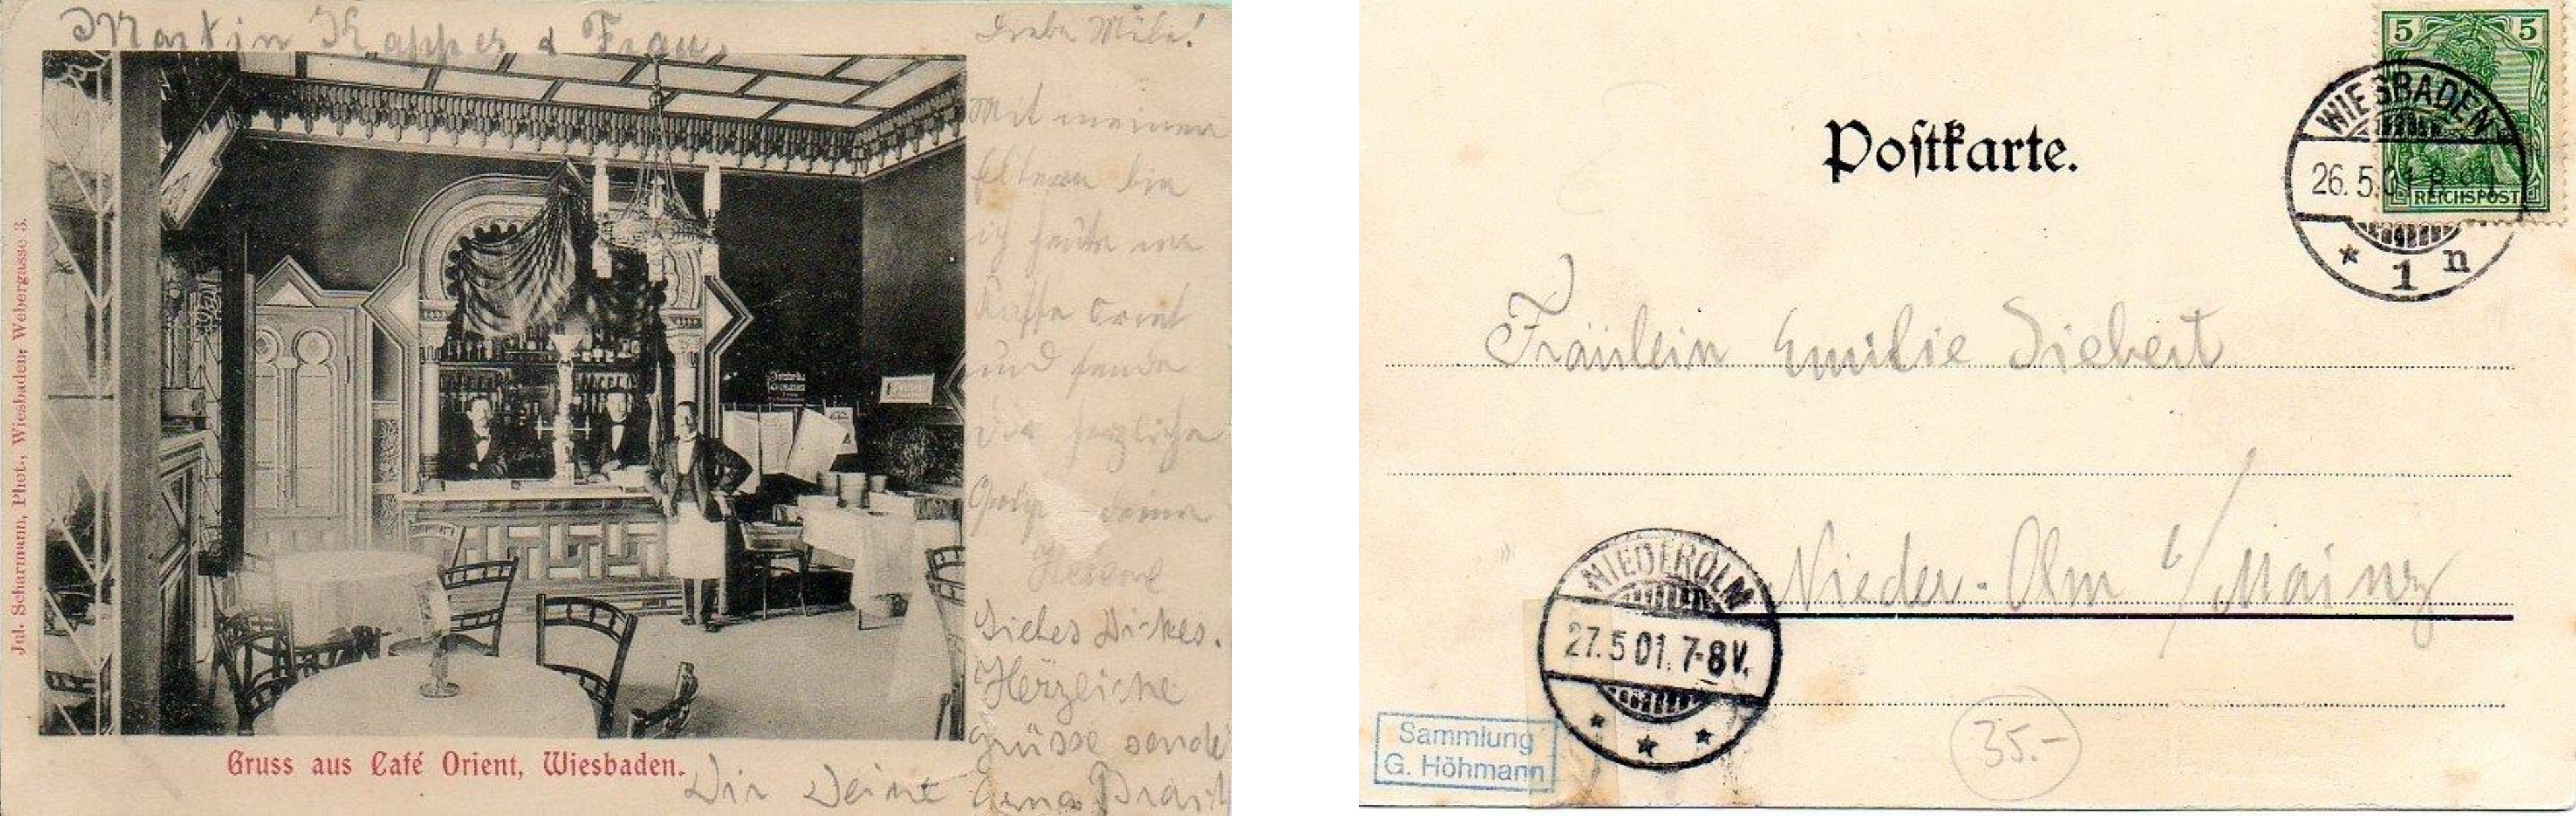 Martin Kapper & Frau,
Liebe Mili!
Mit meinen
Eltern bin
ich heute im
Kaffe Orient
und sende
Dir herzliche
Grüße deine
Helene
Liebes Dickes.
Herzliche
Grüsse sendet
Dir Deine Erna
Gruss aus Café Orient, Wiesbaden.
Jul. Scharmann, Phot., Wiesbaden, Webergasse 3.
5 5
REICHSPOST
WIESBADEN
26. 5. 01
* 1 n
Postkarte.
Fräulein Emilie Siebert
Nieder-Olm b/Mainz
NIEDEROLM
27. 5 01. 7-8V.
35.-
Sammlung
G. Höhmann